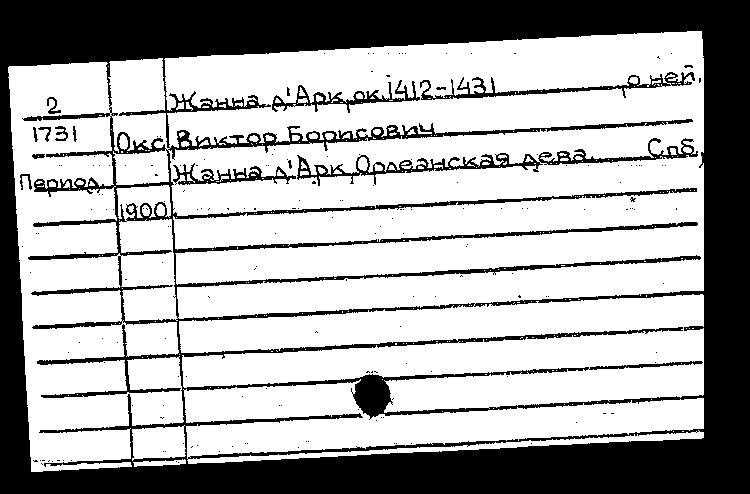 2 Жанна д'Арк, ок. 1412-1431, о ней.
1731 Окс, Виктор Борисович
Период. Жанна д'Арк, Орлеанская дева. Спб.,
1900.